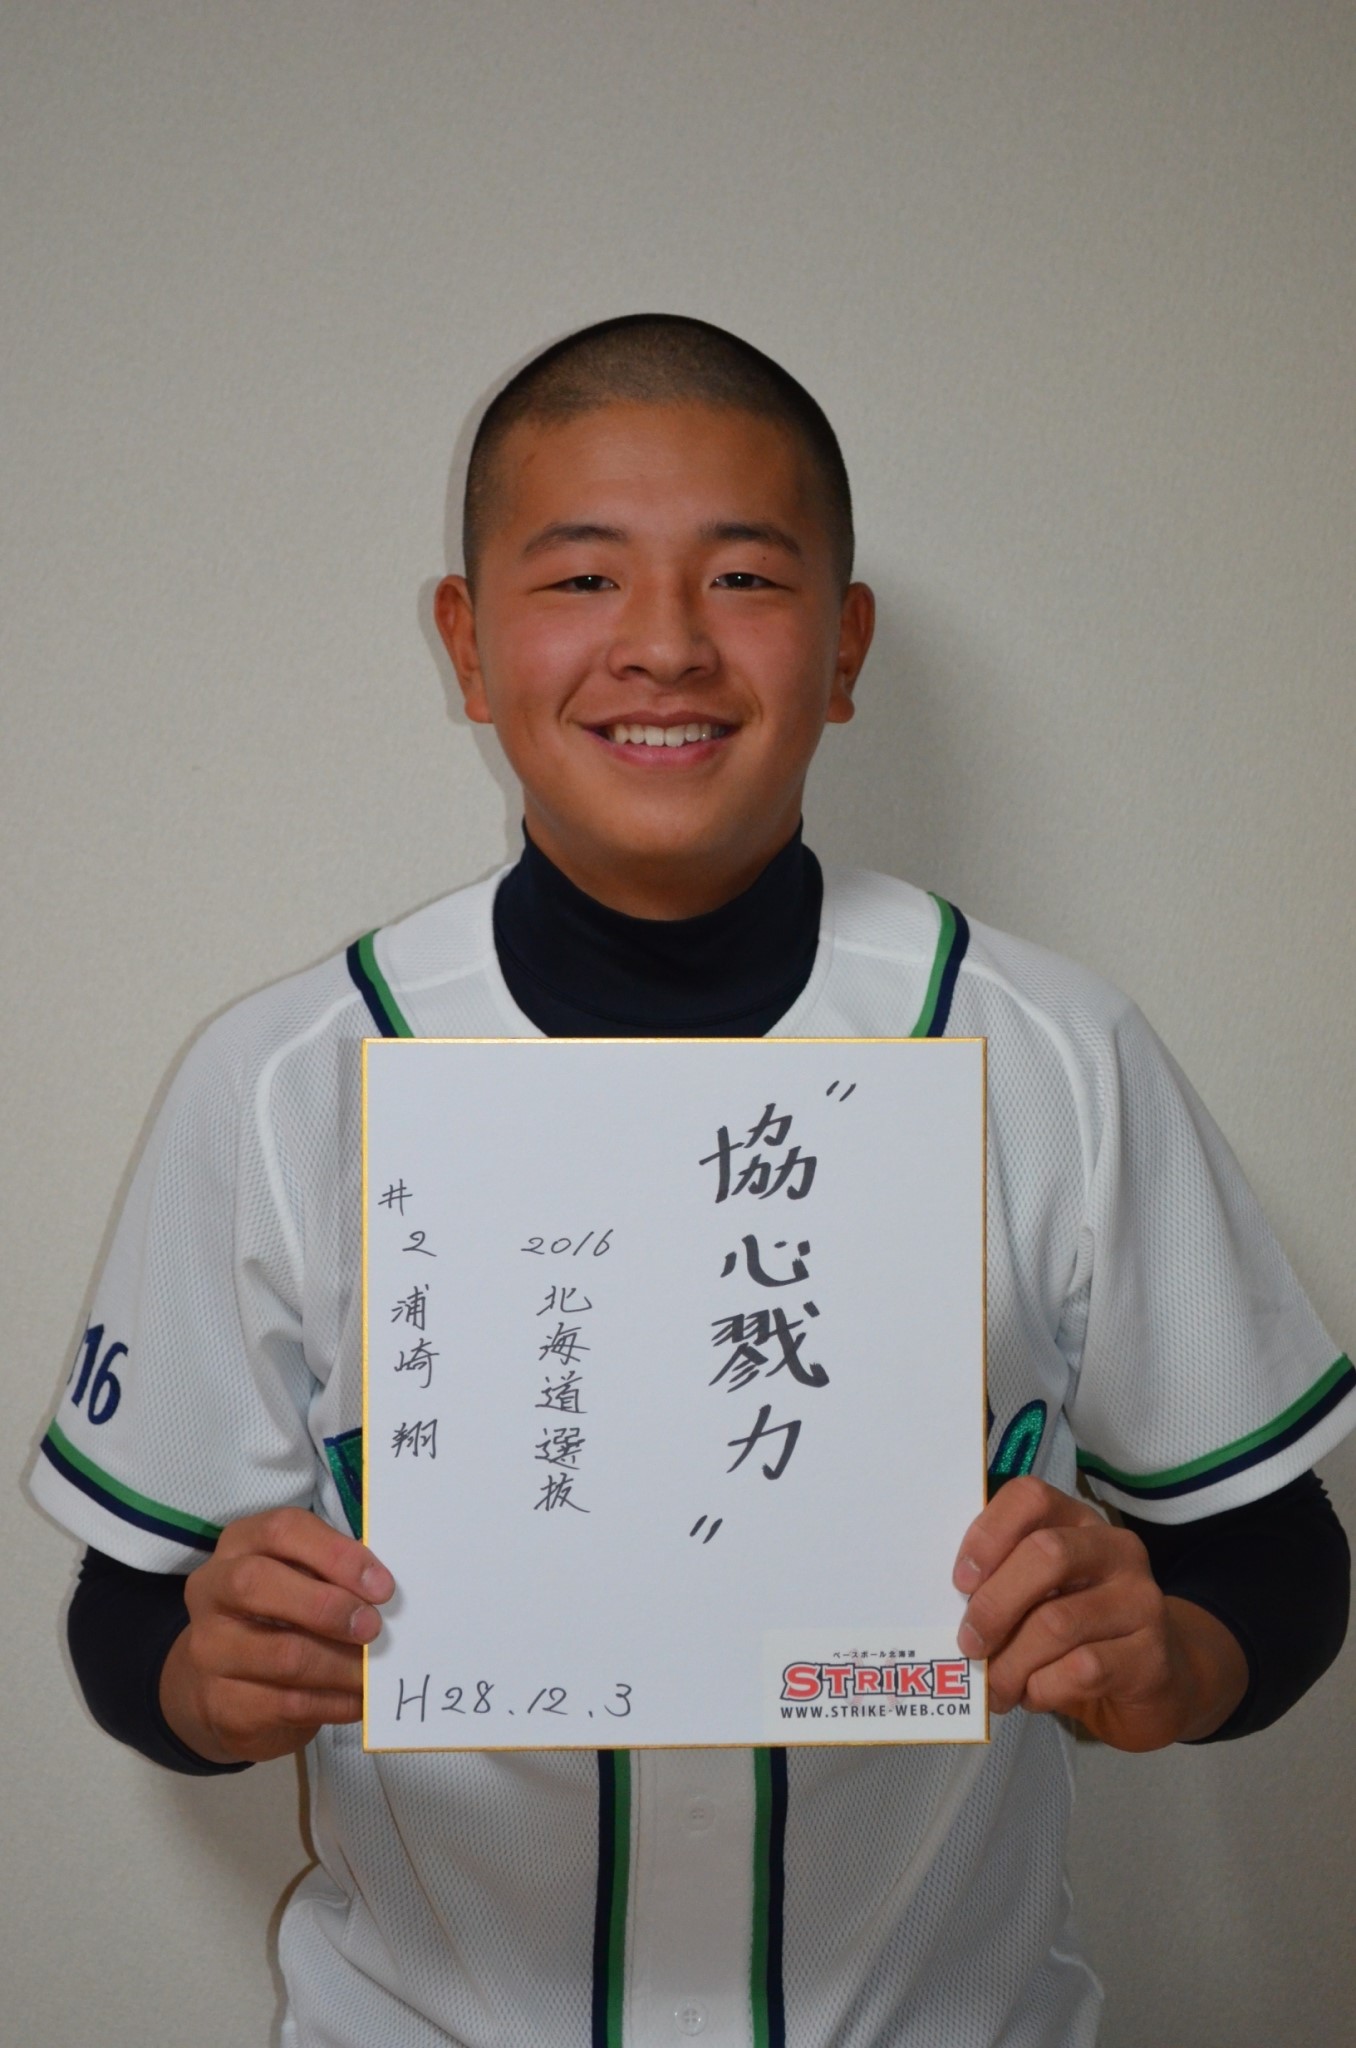 〃協心戮力〃
2016 北海道選抜
#2 浦崎 翔
H28.12.3
ベースボール北海道
STRIKE
WWW.STRIKE-WEB.COM
16